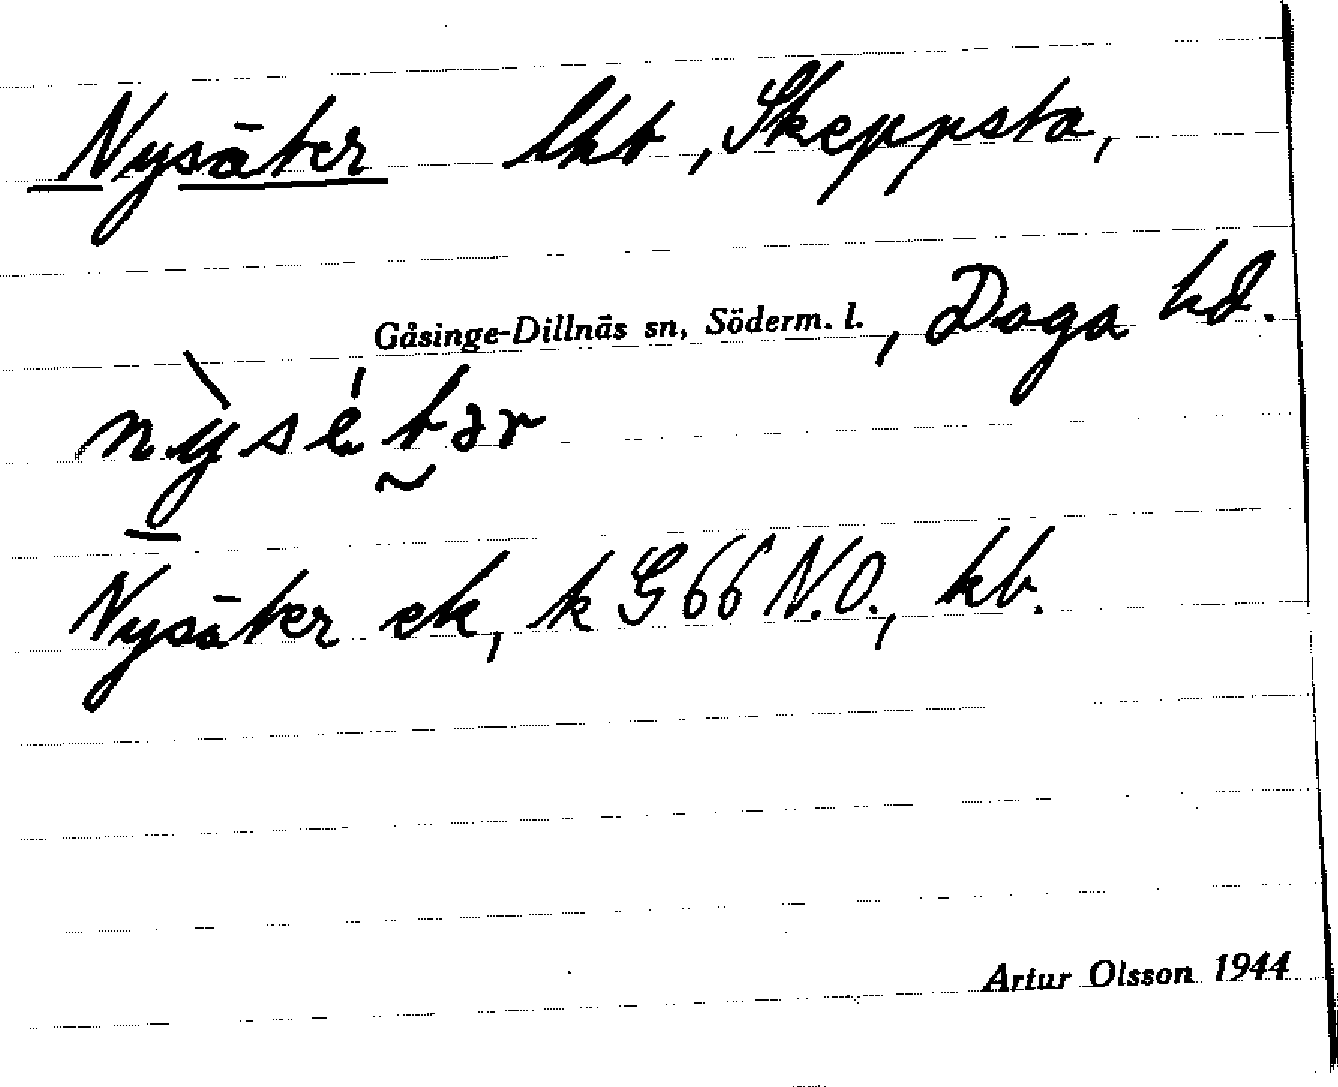 Nysäter lht, Skeppsta,
Gåsinge-Dillnäs sn, Söderm. l., Daga hd.
nỳsétər
Nysäter ek, k G 66 N.O., kb.
Artur Olsson 1944